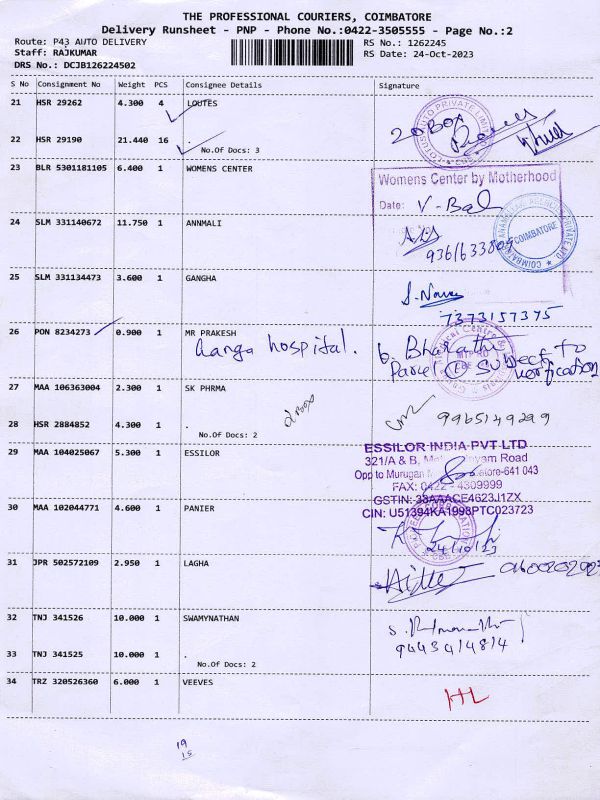 THE PROFESSIONAL COURIERS, COIMBATORE
Delivery Runsheet - PNP - Phone No.:0422-3505555 - Page No.:2
Route: P43 AUTO DELIVERY
RS No.: 1262245
Staff: RAJKUMAR
RS Date: 24-Oct-2023
DRS No.: DCJB126224502
S No Consignment No Weight PCS Consignee Details Signature
21 HSR 29262 4.300 4 LOUTES
20 Box
22 HSR 29190 21.440 16 .
No.Of Docs: 3
23 BLR 5301181105 6.400 1 WOMENS CENTER
Womens Center by Motherhood
Date: V-Bal
24 SLM 331140672 11.750 1 ANNMALI
COIMBATORE
9361633809
25 SLM 331134473 3.600 1 GANGHA
7373157375
26 PON 8234273 0.900 1 MR PRAKESH
Ganga hospital. G. Bharathi
Parcel @ Subject to
verification
27 MAA 106363004 2.300 1 SK PHRMA
2 Box
9965149299
28 HSR 2884852 4.300 1 .
No.Of Docs: 2
29 MAA 104025067 5.300 1 ESSILOR
ESSILOR INDIA PVT LTD
321/A & B,
Road
Opp to Murugan
-641 043
FAX: 0422 - 4309999
GSTIN: 33AAACE4623J1ZX
CIN: U51394KA1998PTC023723
30 MAA 102044771 4.600 1 PANIER
24/10/23
31 JPR 502572109 2.950 1 LAGHA
32 TNJ 341526 10.000 1 SWAMYNATHAN
9443414814
33 TNJ 341525 10.000 1 .
No.Of Docs: 2
34 TRZ 320526360 6.000 1 VEEVES
HL
19
15